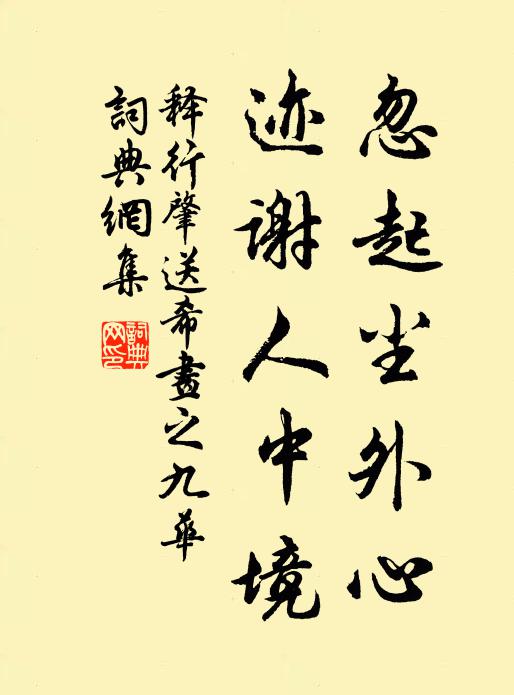 忽起尘外心
迹谢人中境
释行肇送希晝之九华
詞典網集
詞典网印